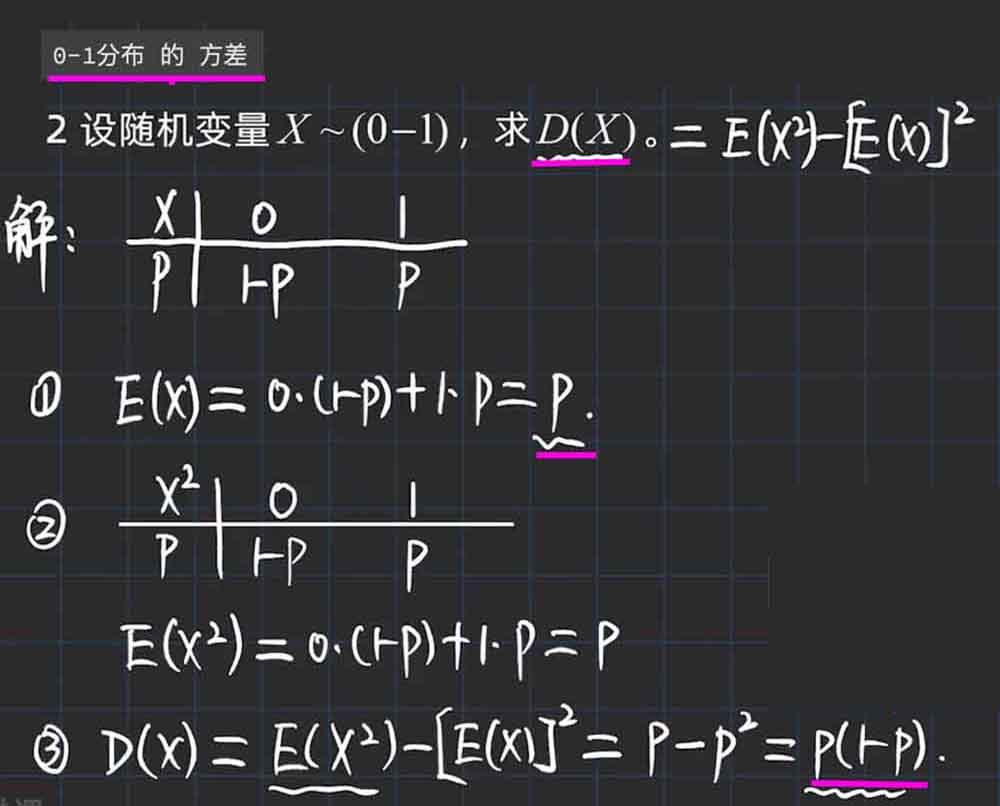 0-1分布 的 方差
2 设随机变量 X ~ (0-1), 求 D(X)。= E(X²)-[E(X)]²
解: X | 0 1
P | 1-P P
① E(X) = 0·(1-P)+1·P = P.
② X² | 0 1
P | 1-P P
E(X²) = 0·(1-P)+1·P = P
③ D(X) = E(X²)-[E(X)]² = P-P² = P(1-P).